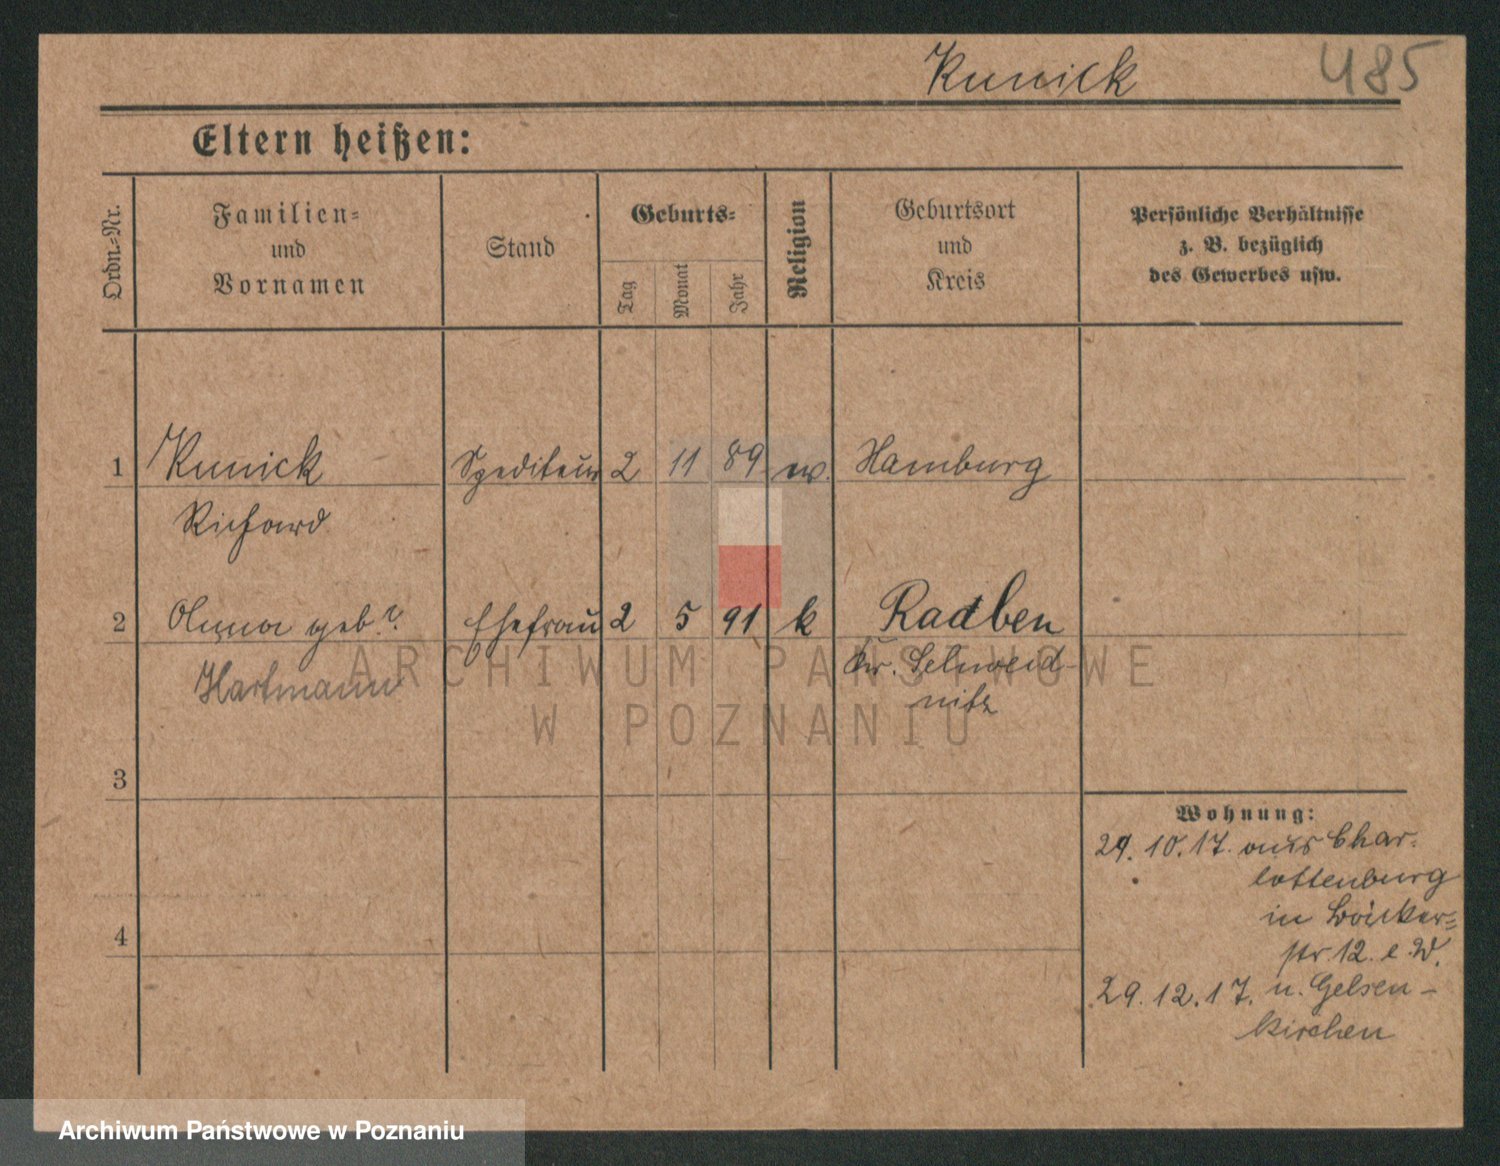 Kunick 485
Eltern heißen:
Ordn.=Nr.
Familien=
und
Vornamen
Stand
Geburts=
Tag
Monat
Jahr
Religion
Geburtsort
und
Kreis
Persönliche Verhältnisse
z. B. bezüglich
des Gewerbes usw.
1 Kunick Spediteur 2 11 89 ev. Hamburg
Richard
2 geb. Ehefrau 2 5 91 k Radben
Hartmann Kr. Schweid-
nitz
3
4
Wohnung:
29. 10. 17. aus Char-
lottenburg
in
str 12. b. W.
29. 12. 17. n. Gelsen-
kirchen
ARCHIWUM PAŃSTWOWE
W POZNANIU
Archiwum Państwowe w Poznaniu